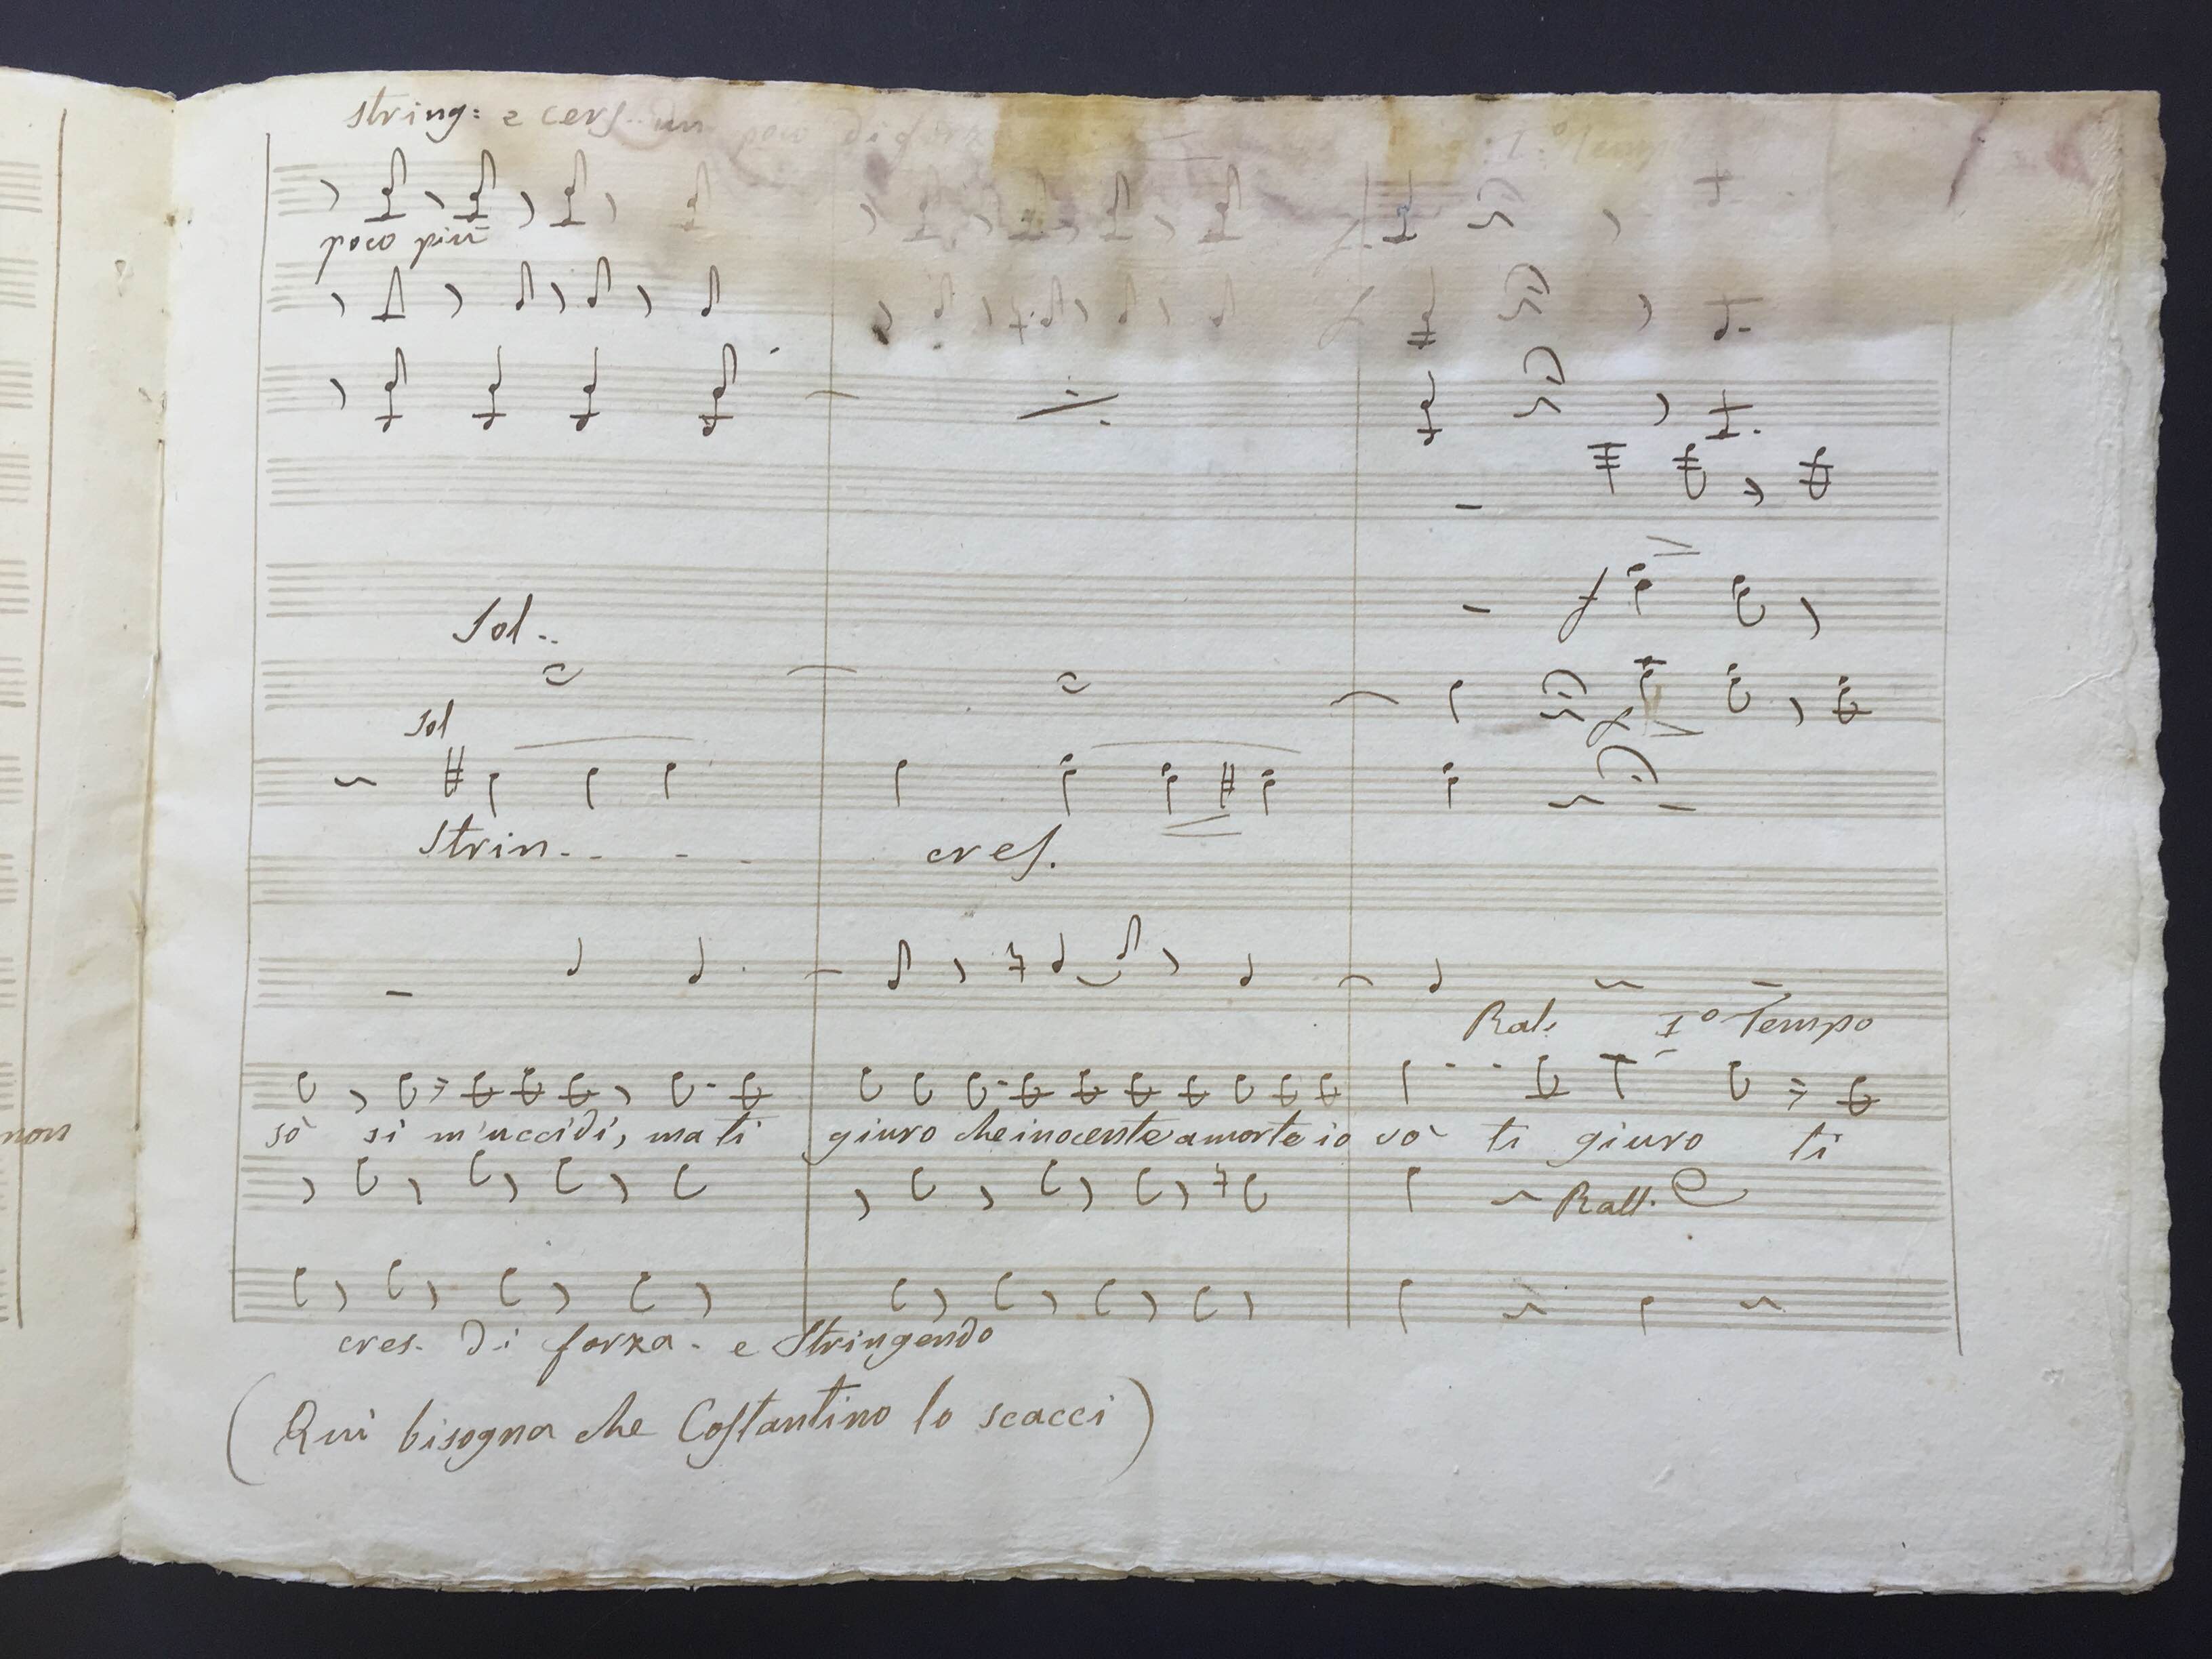 string: e cres. un poco di forza
I.º Temp
poco più
Sol..
Sol
Strin..
cres.
Ral. 1º Tempo
non
sò si m'uccidi, ma ti giuro che inocente a morte io vò ti giuro ti
Rall.
cres. di forza. e Stringendo
(Quì bisogna che Costantino lo scacci)